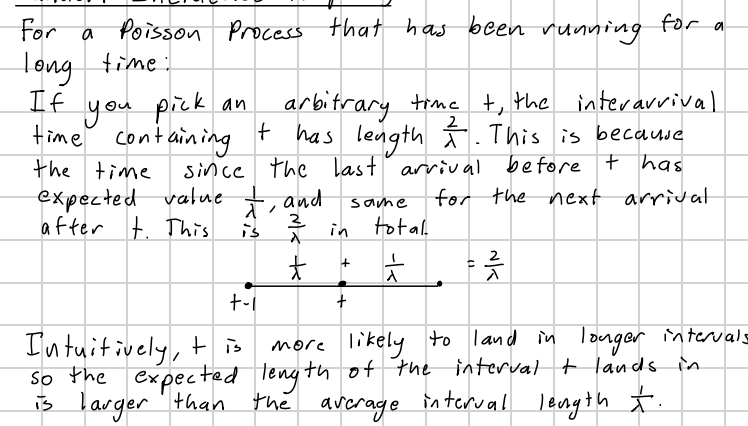 For a Poisson Process that has been running for a
long time:
If you pick an arbitrary time t, the interarrival
time containing t has length 2/λ. This is because
the time since the last arrival before t has
expected value 1/λ, and same for the next arrival
after t. This is 2/λ in total.
1/λ + 1/λ = 2/λ
t-1 t
Intuitively, t is more likely to land in longer intervals
so the expected length of the interval t lands in
is larger than the average interval length 1/λ.